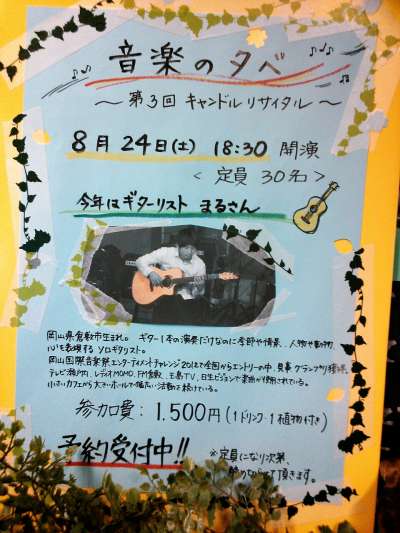 音楽の夕べ
～第3回 キャンドルリサイタル～
8月24日(土) 18:30 開演
<定員 30名>
今年はギターリスト まるさん
岡山県倉敷市生まれ。 ギター1本の演奏だけなのに季節や情景、人物や動物
心を表現するソロギタリスト。
岡山国際音楽祭エンターテイメントチャレンジ2012で全国からエントリーの中、見事グランプリ獲得。
テレビ瀬戸内、レディオMOMO、FM倉敷、玉島TV、日生ビジョンで楽曲が使用されている。
小さいカフェから大きいホールまで幅広い活動を続けている。
参加費: 1.500円(1ドリンク・1植物付き)
予約受付中!!
※定員になり次第、
締めきらせて頂きます。